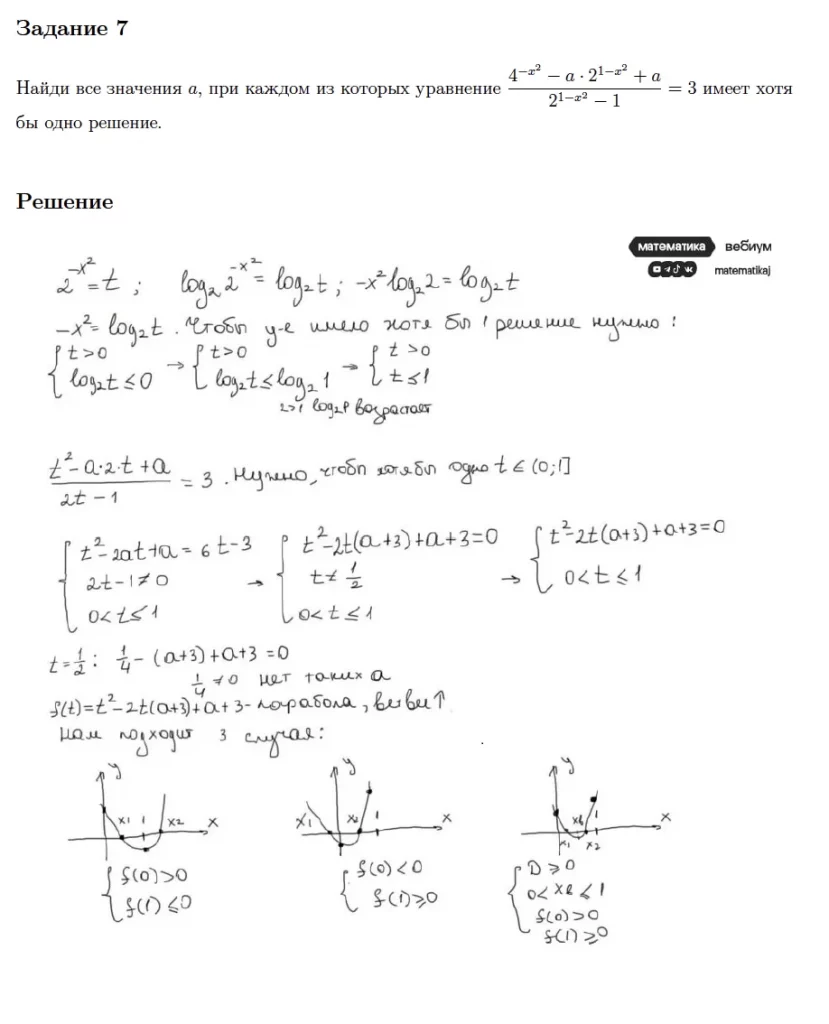 Задание 7
Найди все значения a, при каждом из которых уравнение (4^{-x²} − a · 2^{1−x²} + a) / (2^{1−x²} − 1) = 3 имеет хотя
бы одно решение.
Решение
математика вебиум
matematikaj
2^{-x²} = t ; log₂ 2^{-x²} = log₂t ; -x² log₂2 = log₂t
-x² = log₂t . Чтобы у-е имело хотя бы 1 решение нужно :
{ t>0 → { t>0 → { t>0
log₂t ≤ 0 log₂t ≤ log₂1 t ≤ 1
2>1 log₂t возрастает
(t² - a·2·t + a) / (2t - 1) = 3 . Нужно, чтобы хотя бы одно t ∈ (0;1]
{ t² - 2at + a = 6t - 3 → { t² - 2t(a+3) + a+3 = 0 → { t² - 2t(a+3) + a+3 = 0
2t - 1 ≠ 0 t ≠ 1/2 0 < t ≤ 1
0 < t ≤ 1 0 < t ≤ 1
t = 1/2 : 1/4 - (a+3) + a+3 = 0
1/4 ≠ 0 нет таких a
f(t) = t² - 2t(a+3) + a+3 - парабола, ветви ↑
Нам подходит 3 случая:
y x1 1 x2 x
y x1 x2 1 x
y x1 xв x2 1 x
{ f(0) > 0 { f(0) < 0 { D ≥ 0
f(1) ≤ 0 f(1) ≥ 0 0 < xв ≤ 1
f(0) > 0
f(1) ≥ 0